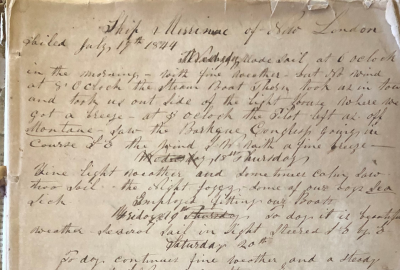 Ship Merrimac of New London
Sailed July 17th 1844
Wednesday Made sail at 6 O clock
in the morning – with fine weather – but no wind
at 7 O Clock the Steam Boat Thorn took us in tow
and took us out side of the Light house where we
got a breeze – at 8 o clock the Pilot left us off
Montauk – Saw the Barkque going in
Course S E the Wind N W North a fine breeze –
Wednesday 18th Thursday
Fine light weather and some times calm Saw
two Sail – the night foggy Some of our boys Sea
Sick Employed fitting our boats
Friday 19th Thursday So day it is beautiful
weather Several sail in sight Steered S E by E
Saturday 20th
To day continues fine weather and a steady